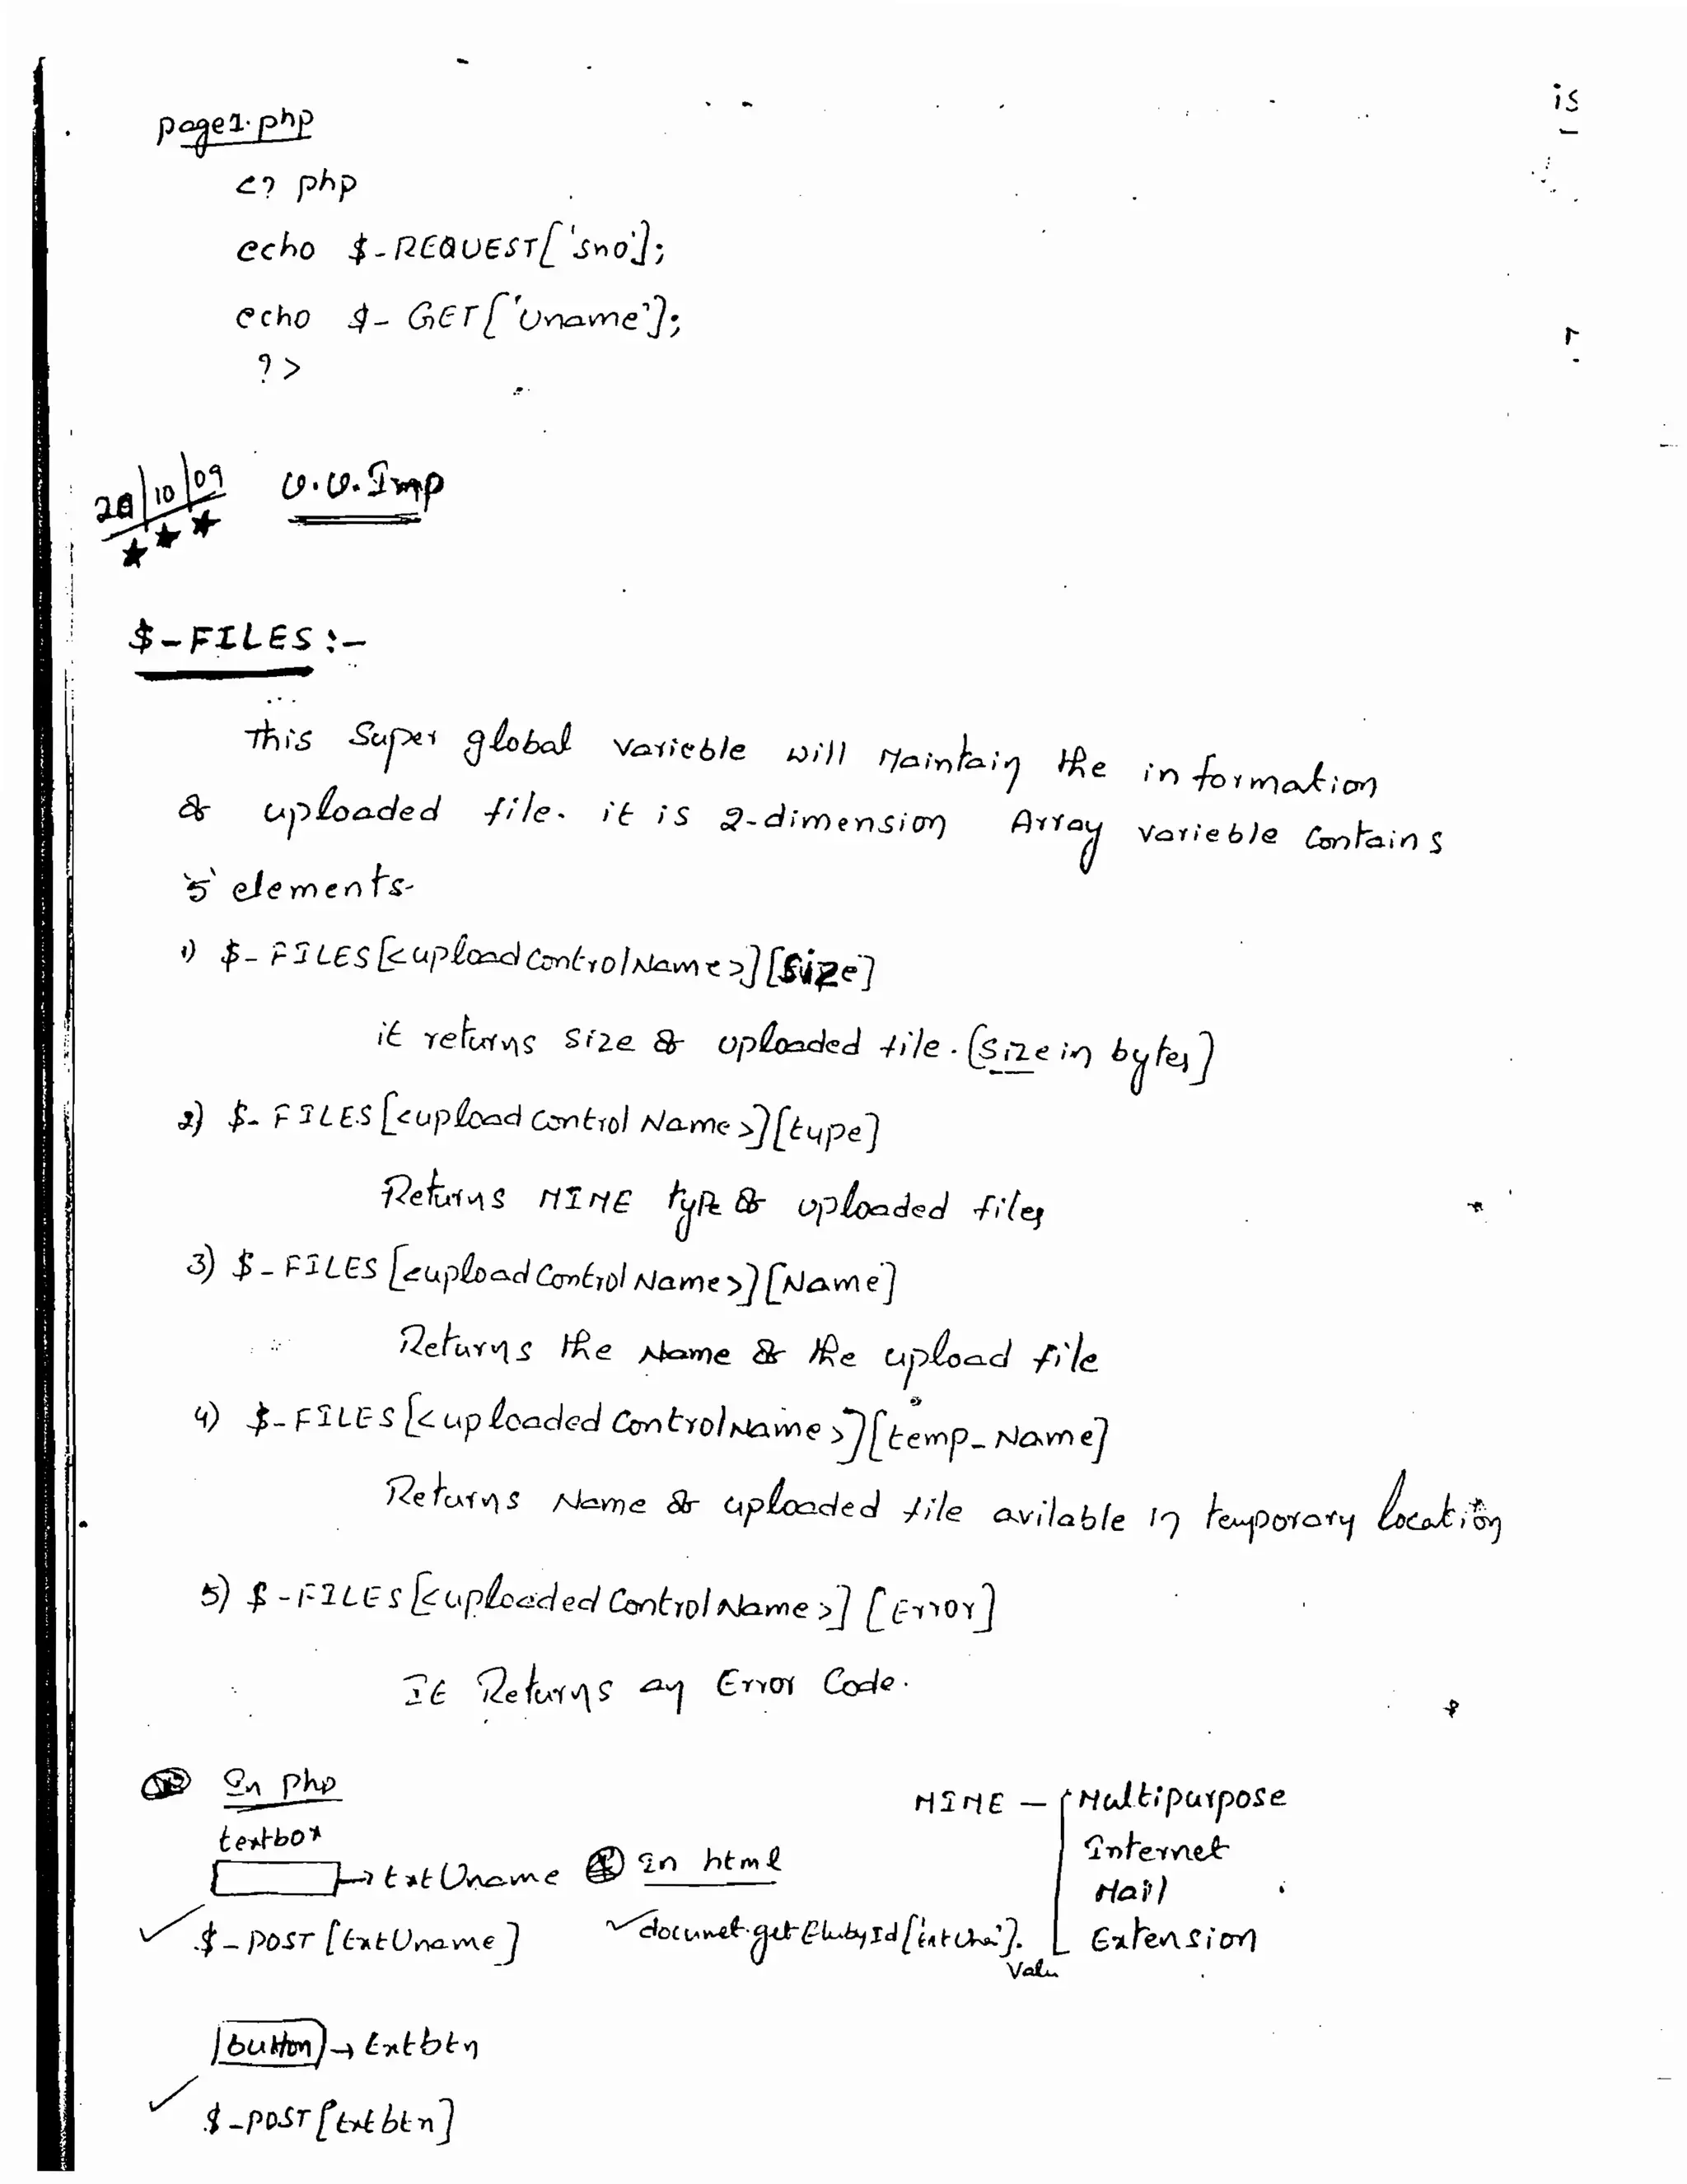 is
page1.php
<? php
echo $_REQUEST['sno'];
echo $_GET['Uname'];
?>
r
28/10/09 V.V.Imp
$_FILES :-
This Super global varieble will Maintain the information
of uploaded file. it is 2-dimension Array varieble Contains
'5' elements-
1) $_FILES[<upload ControlName>][Size]
it returns size of uploaded file. (Size in bytes)
2) $_FILES[<upload Control Name>][type]
Returns MIME type of uploaded files
3) $_FILES[<upload Control Name>][Name]
Returns the Name of the upload file
4) $_FILES[<uploaded ControlName>][temp_Name]
Returns Name of uploaded file avilable in temporary location
5) $_FILES[<uploaded ControlName>] [Error]
It Returns an Error Code.
In php
MIME — Multipurpose
Internet
Mail
Extension
textbox
→ txtUname
In html
$_POST[txtUname]
value
button → txtbtn
$_POST[txtbtn]